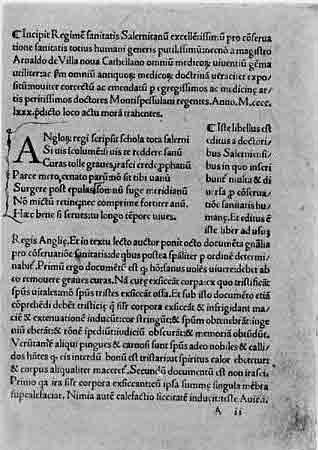 Incipit Regimē sanitatis Salernitanū excellētissimū pro cōserua
tione sanitatis totius humani generis putilissimū: necnō a magistro
Arnaldo de Villa noua Cathelano omniū medicoꝝ viuentiū gēma
vtiliter ac ẜm omniū antiquoꝝ medicoꝝ doctrinā veraciter expo
sitū: nouiter correctū ac emendatū per egregissimos ac medicine ar
tis peritissimos doctores Montispessulani regentes. Anno. M.cccc.
lxxx. predicto loco actu morā trahentes.
ANglorū regi scripsit schola tota salerni
Si vis incolumē si vis te reddere sanū
Curas tolle graues, irasci crede prophanū
Parce mero, cenato parū: nō sit tibi vanū
Surgere post epulas: somnū fuge meridianū
Nō mictū retine, nec comprime fortiter anū.
Hec bene si serues tu longo tēpore viues.
Iste libellus est
editus a doctori
bus Salernēsi
bus in quo inseri
bunt̄ multa & di
uersa pro cōserua
tiōe sanitatis hu
mane. Et editus ē
iste liber ad vsuꝫ
Regis Anglie. Et in textu lectio auctor ponit octo documēta gnālia
pro cōseruatiōe sanitatis: de quibus postea specialiter per ordinē determi
nabit. Primū ergo documētū est quod
remouere graues curas. Nā cure exsiccāt corpora: eo quod tristificāt
spūs vitales: modo spūs tristes exsiccāt ossa. Et sub isto documēto etiā
cōprehēdi debēt tristicie que sil'r corpora exsiccāt & infrigidant ma
ciē & extenuationē inducūt: cor stringūt: & spūm obtenebrāt: inge
niū ebetāt: & rōnē ipediūt: iudiciū obscurāt: & memoriā obtūdūt.
Verūtamē aliqui pingues & carnosi sunt
dos hūtes quos cis interdū bonū est tristari: vt spiritus calor ebetetur
& corpus aliqualiter maceret̄. Secundū documentū est non irasci.
Primo quia ira sil'r corpora exsiccat
supcalefaciat. Nimia autē calefactio siccitatē inducit: teste Auicē.
A ii